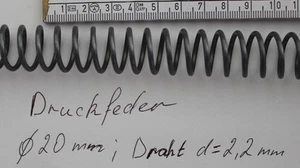 1 2 3 4 5 6 7 8 9 10
Druckfeder
Ø20 mm; Draht d=2,2 mm